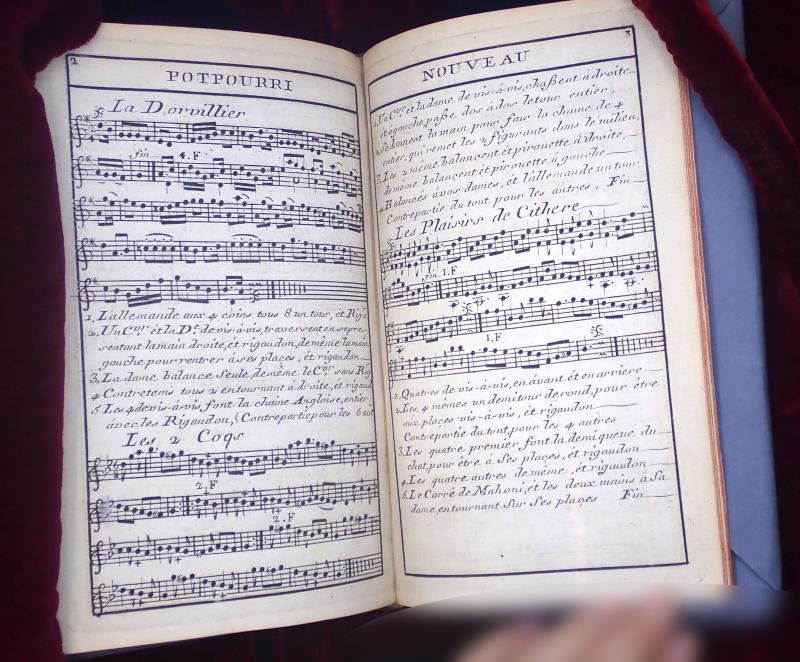 2
POTPOURRI
La Dorvillier
fin
4. F
1, L'allemande aux 4 coins tous 8 un tour, et Rig
2, Un C.er et la D.e de vis-à-vis, traversent en se pre-
sentant la main droite, et rigaudon, de même la main
gauche, pour rentrer à ses places, et rigaudon
3, La dame balance seule, de même le C.er sans Rig
4, Contretems tous 2 en tournant à droite, et rigaud
5, Les 4 de vis-à-vis, font la chaine Angloise, entier
avec les Rigaudon, (Contrepartie pour les 6 aut
Les 2 Coqs
2. F
2. F
3
NOUVEAU
1, Un C.er et la dame de vis-à-vis, chaßent à droite
et a gauche, paße dos à dos le tour entier,
2, se donnent la main pour faire la chaine de 4
entier, qui remet les 2 figurants dans le milieu,
3, Les 2 même balancent et pirouette à droite
de même balancent et pirouette à gauche
4, Balancés à vos dames, et l'allemande un tour
Contrepartie du tout pour les autres, Fin
Les Plaisirs de Cithere
fin
1. F
1. F
1, Quatres de vis-à-vis, en avant et en arriere
2, Les 4 mêmes un demi tour de rond, pour être
aux places vis-à-vis, et rigaudon
Contrepartie du tout, pour les 4 autres
3, Les quatre premier font la demi queue du
chat, pour être à Ses places, et rigaudon
4, Les quatre autres de même, et rigaudon
5, Le Carré de Mahoni, et les deux mains à Sa
dame, en tournant Sur Ses places Fin